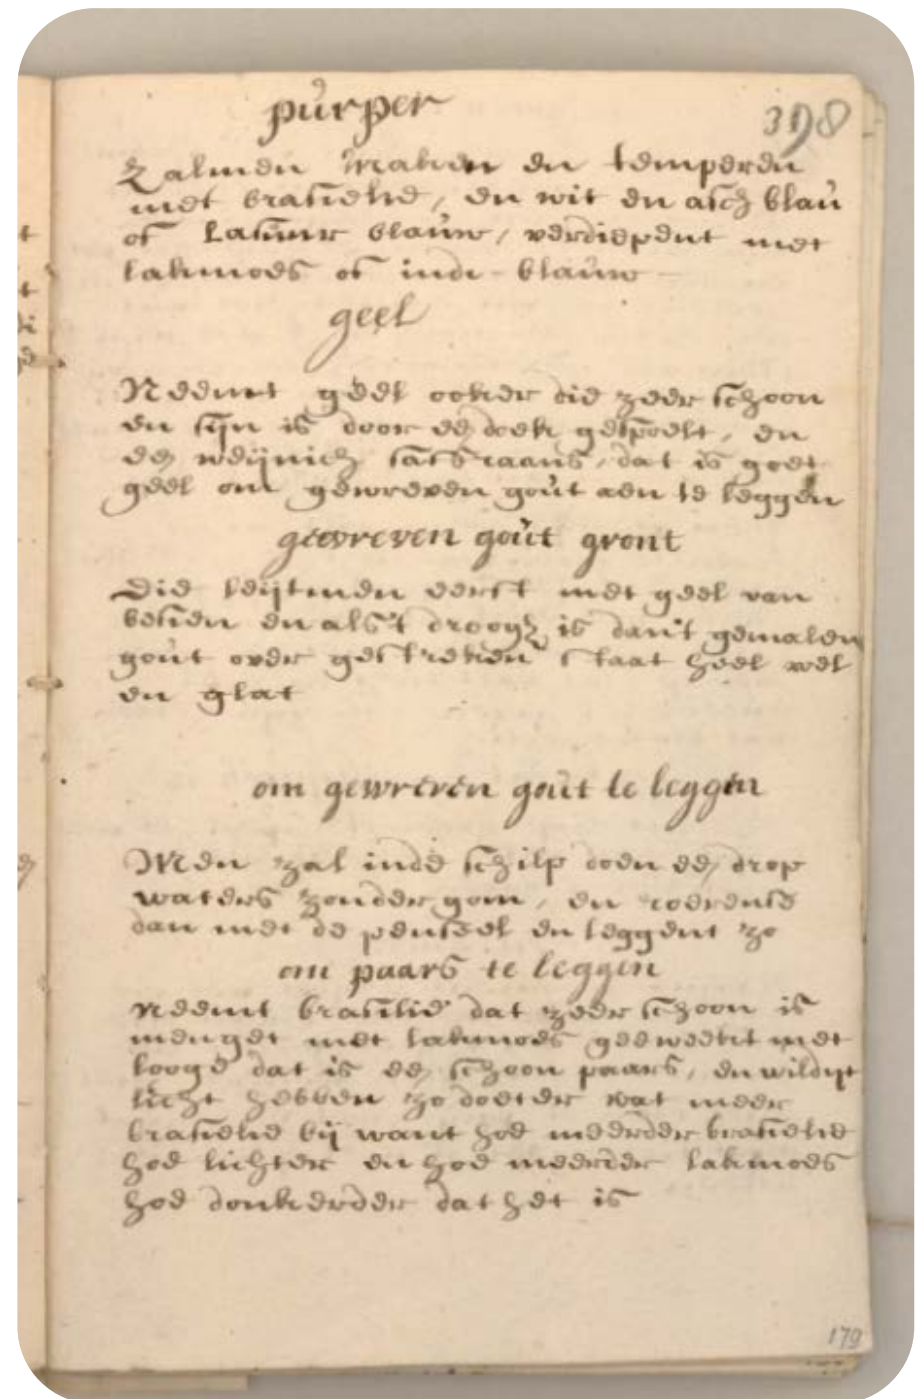 purper
398
Zalmen maken en temperen
met brasielie, en wit en asch blau
of lasuur blauw, verdiepent met
lakmoes of inde-blauw
geel
Neemt geel ooker die zeer schoon
en fijn is door ee doek gespoelt, en
ee weijnich safraans, dat is goet
geel om gewreven gout aen te leggen
gewreven gout gront
Die leijtmen eerst met geel van
besien en als't droogh is dan't gemalen
gout over gestreken staat heel wel
en glat
om gewreven gout te leggen
Men zal inde schilp doen ee drop
waters zonder gom, en roerense
dan met de penseel en leggent zo
om paars te leggen
Neemt brasilie dat zeer schoon is
menget met lakmoes geweekt met
looge dat is ee schoon paars, en wildijt
licht hebben zo doeter wat meer
brasielie bij want hoe meerder brasielie
hoe lichter en hoe meerder lakmoes
hoe donkerder dat het is
179